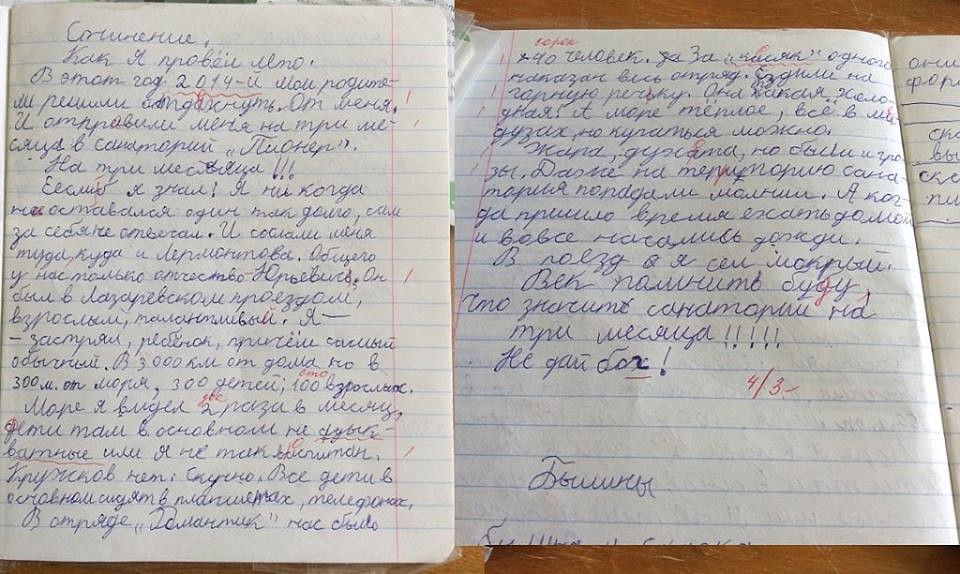 Сочинение.
Как Я провёл лето.
В этот год 2014-й мои родите-
ли решили отдохнуть. От меня.
И отправили меня на три ме-
сяца в санаторий „Пионер".
На три месяца!!!
Еслиб я знал! Я ни когда
не оставался один так долго, сам
за себя не отвечал. И сослали меня
туда, куда и Лермонтова. Общего
у нас только отчество - Юрьевич. Он
был в Лазаревском проездом,
взрослый, талантливый. Я —
- застрял, ребёнок, причём самый
обычный. В 3000 км от дома но в
300 м. от моря, 300 детей; 100 взрослых.
сто
Море я видел 2 раза в месяц,
две
дети там в основном не адык-
ватные или я не так воспитан.
Кружков нет. Скучно. Все дети в
основном сидят в планшетах, телефонах.
В отряде „Романтик" нас было
сорок
40 человек. За „касяк" одного
наказан весь отряд. Ездили на
горную речку. Она такая холо-
дная! А море тёплое, всё в ме
дузах, но купаться можно.
Жара, духота, но были и гро-
зы. Даже на территорию сана-
тория попадали молнии. А ког-
да пришло время ехать домой
и вовсе начались дожди.
В поезд я сел мокрый.
Век помнить буду,
что значить санаторий на
три месяца!!!!!
Не дай бох!
4/3-
Былины